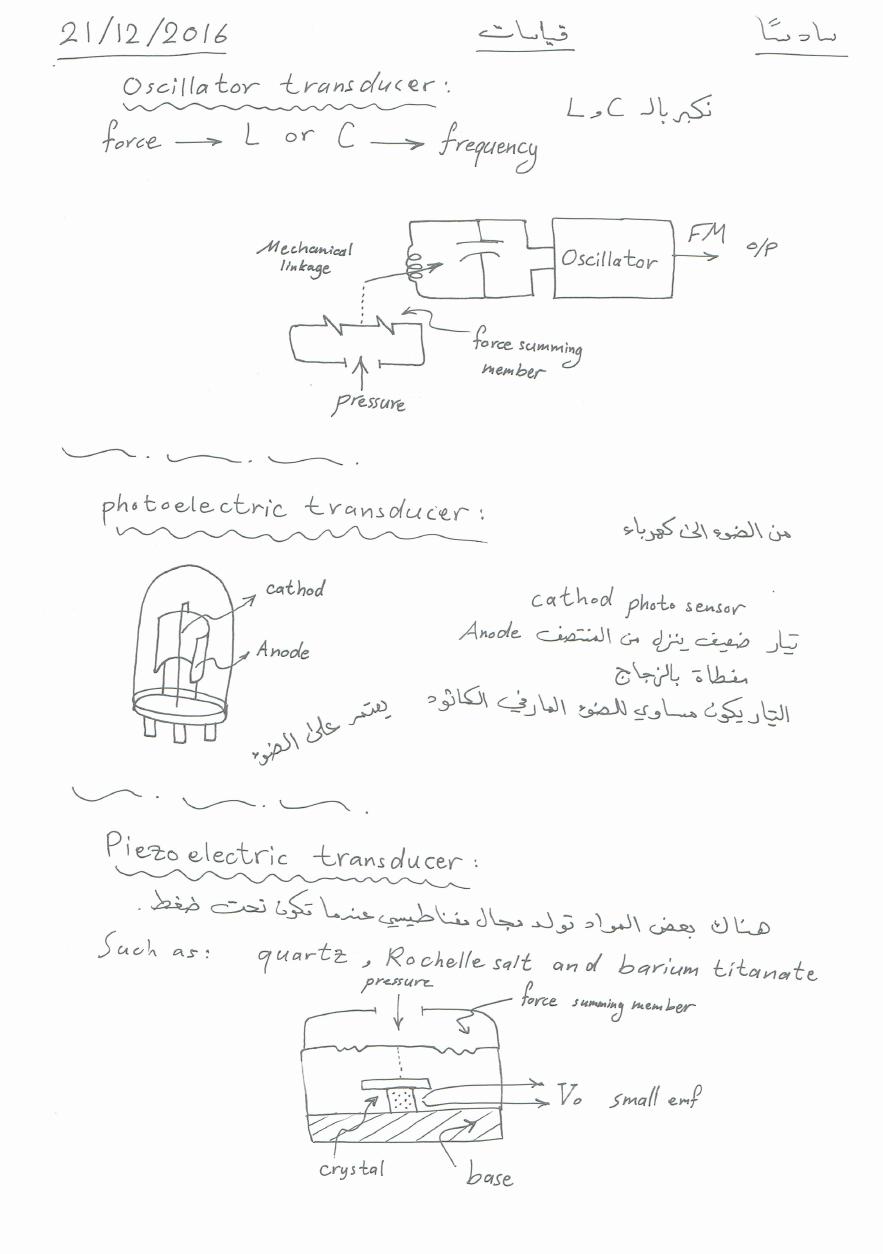 21/12/2016 قياسات سادسًا
Oscillator transducer:
نكبر بالـ C و L
force → L or C → frequency
Mechanical
linkage
Oscillator
FM
o/p
force summing
member
pressure
photoelectric transducer:
من الضوء الى كهرباء
cathod
Anode
cathod photo sensor
تيار ضعيف ينزل من المنتصف Anode
مغطاة بالزجاج
التيار يكون مساوي للضوء المار في الكاثود
يعتمر على الضوء
Piezo electric transducer:
هناك بعض المواد تولد مجال مغناطيسي عندما تكون تحت ضغط.
Such as: quartz, Rochelle salt and barium titanate
pressure
force summing member
Vo small emf
crystal
base